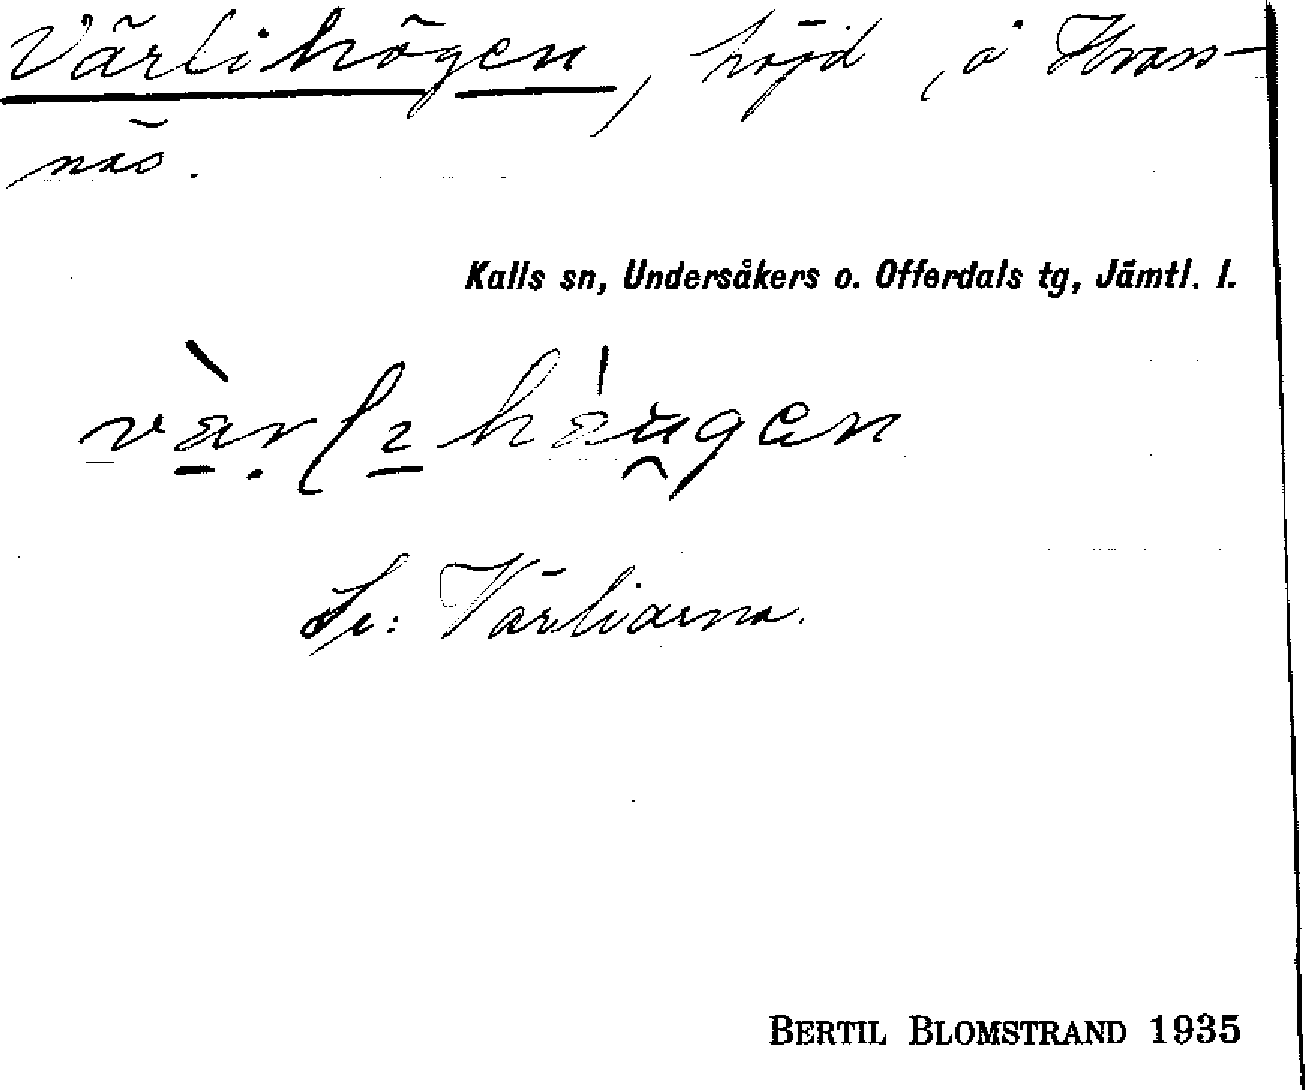 Vårlihögen, höjd å Kvass-
näs.
Kalls sn, Undersåkers o. Offerdals tg, Jämtl. l.
Se: Vårliarna.
BERTIL BLOMSTRAND 1935